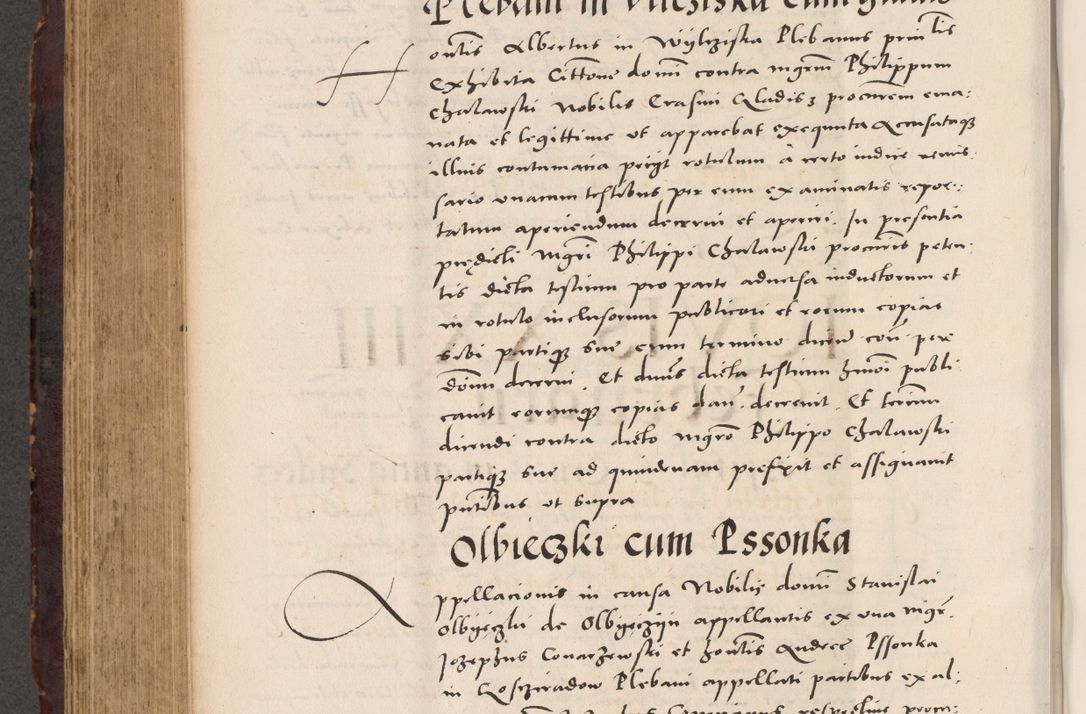 Plebani in Vilcziska cum
Honestis Albertus in Wylcziska Plebanus prin tis
Exhibita Citione domini contra mgrm Philippum
Chalawski Nobilis Erasmi procurem ema:
nata et legittime ut apparebat exequuta Accusataque
illius contumacia rotulum a certo iudice
sario unacum testibus per eum examinatis repor:
tatum aperiendum decerni et aperiri. In presentia
prędicti mgri Philippi Chalawski procuris peten
tis dicta testium pro parte adversa inductorum et
in rotulo inclusorum publicari et eorum copias
sibi partique sue cum termino dicen con per
domm decerni. Et dnus dicta testium hmoi publi
cavit eorumque copias dari decrevit. Et termm
dicendi contra dicto mgro Philippo Chalawski
partique sue ad quindenam prefixit et assignavit
pntibus ut supra
Olbieczki cum Pssonka
Appellacionis in causa Nobilis domi Stanislai
Olbyęczki de Olbyęczyn appellantis ex una mgr.
Jozephus Conarzewski et honstis Andree Pssonka
in Gosczeradow Plebani appellati partibus ex al: